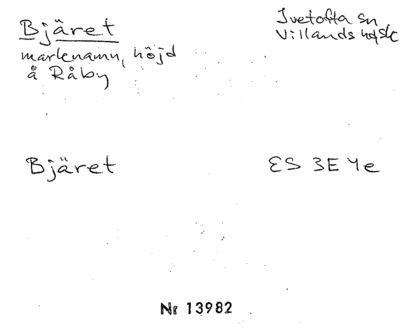 Bjäret
Ivetofta sn
Villands hd, Sk
marknamn, höjd
å Råby
Bjäret
ES 3E 4e
Nr 13982